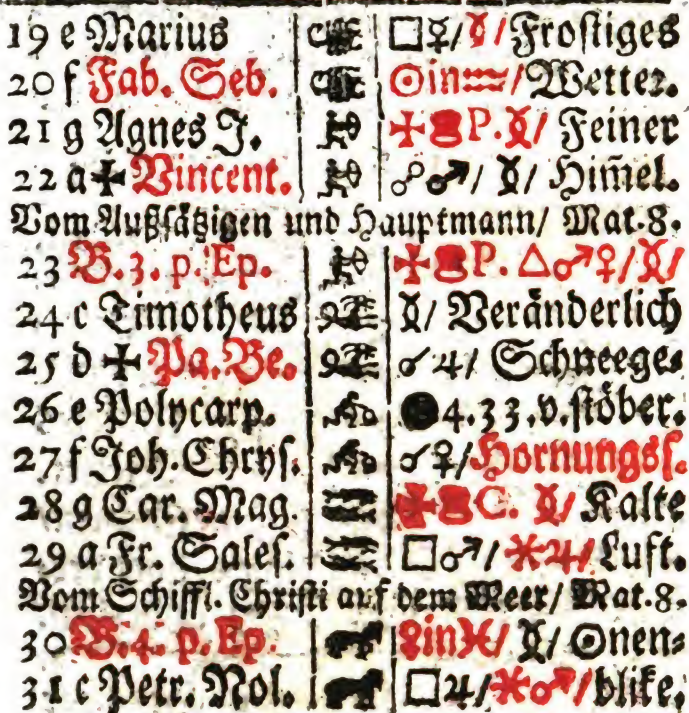 19 e Marius □☿/ ☿/ Froſtiges
20 f Fab. Seb. ☉in♒/ Wetter.
21 g Agnes J. ✠ P. ☿/ Feiner
22 a✠ Vincent. ☍♂/ ☿/ Him̃el.
Vom Außſätzigen und Hauptmann/ Mat.8.
23 B. 3. p. Ep. ✠ P. △♂♀/ ☿/
24 c Timotheus ☿/ Veränderlich
25 d ✠ Pa. Be. ☌♃/ Schneege⸗
26 e Polycarp. ●4.33.v.ſtöber.
27 f Joh. Chryſ. ☌♀/ Hornungsſ.
28 g Car. Mag. ✠ C. ☿/ Kalte
29 a Fr. Saleſ. □♂/ ⚹♃/ Luft.
Vom Schiffl. Chriſti auf dem Meer/ Mat.8.
30 B. 4. p. Ep. ♀in♓/ ☿/ ☉nen⸗
31 c Petr. Nol. □♃/ ⚹♂/ blike,